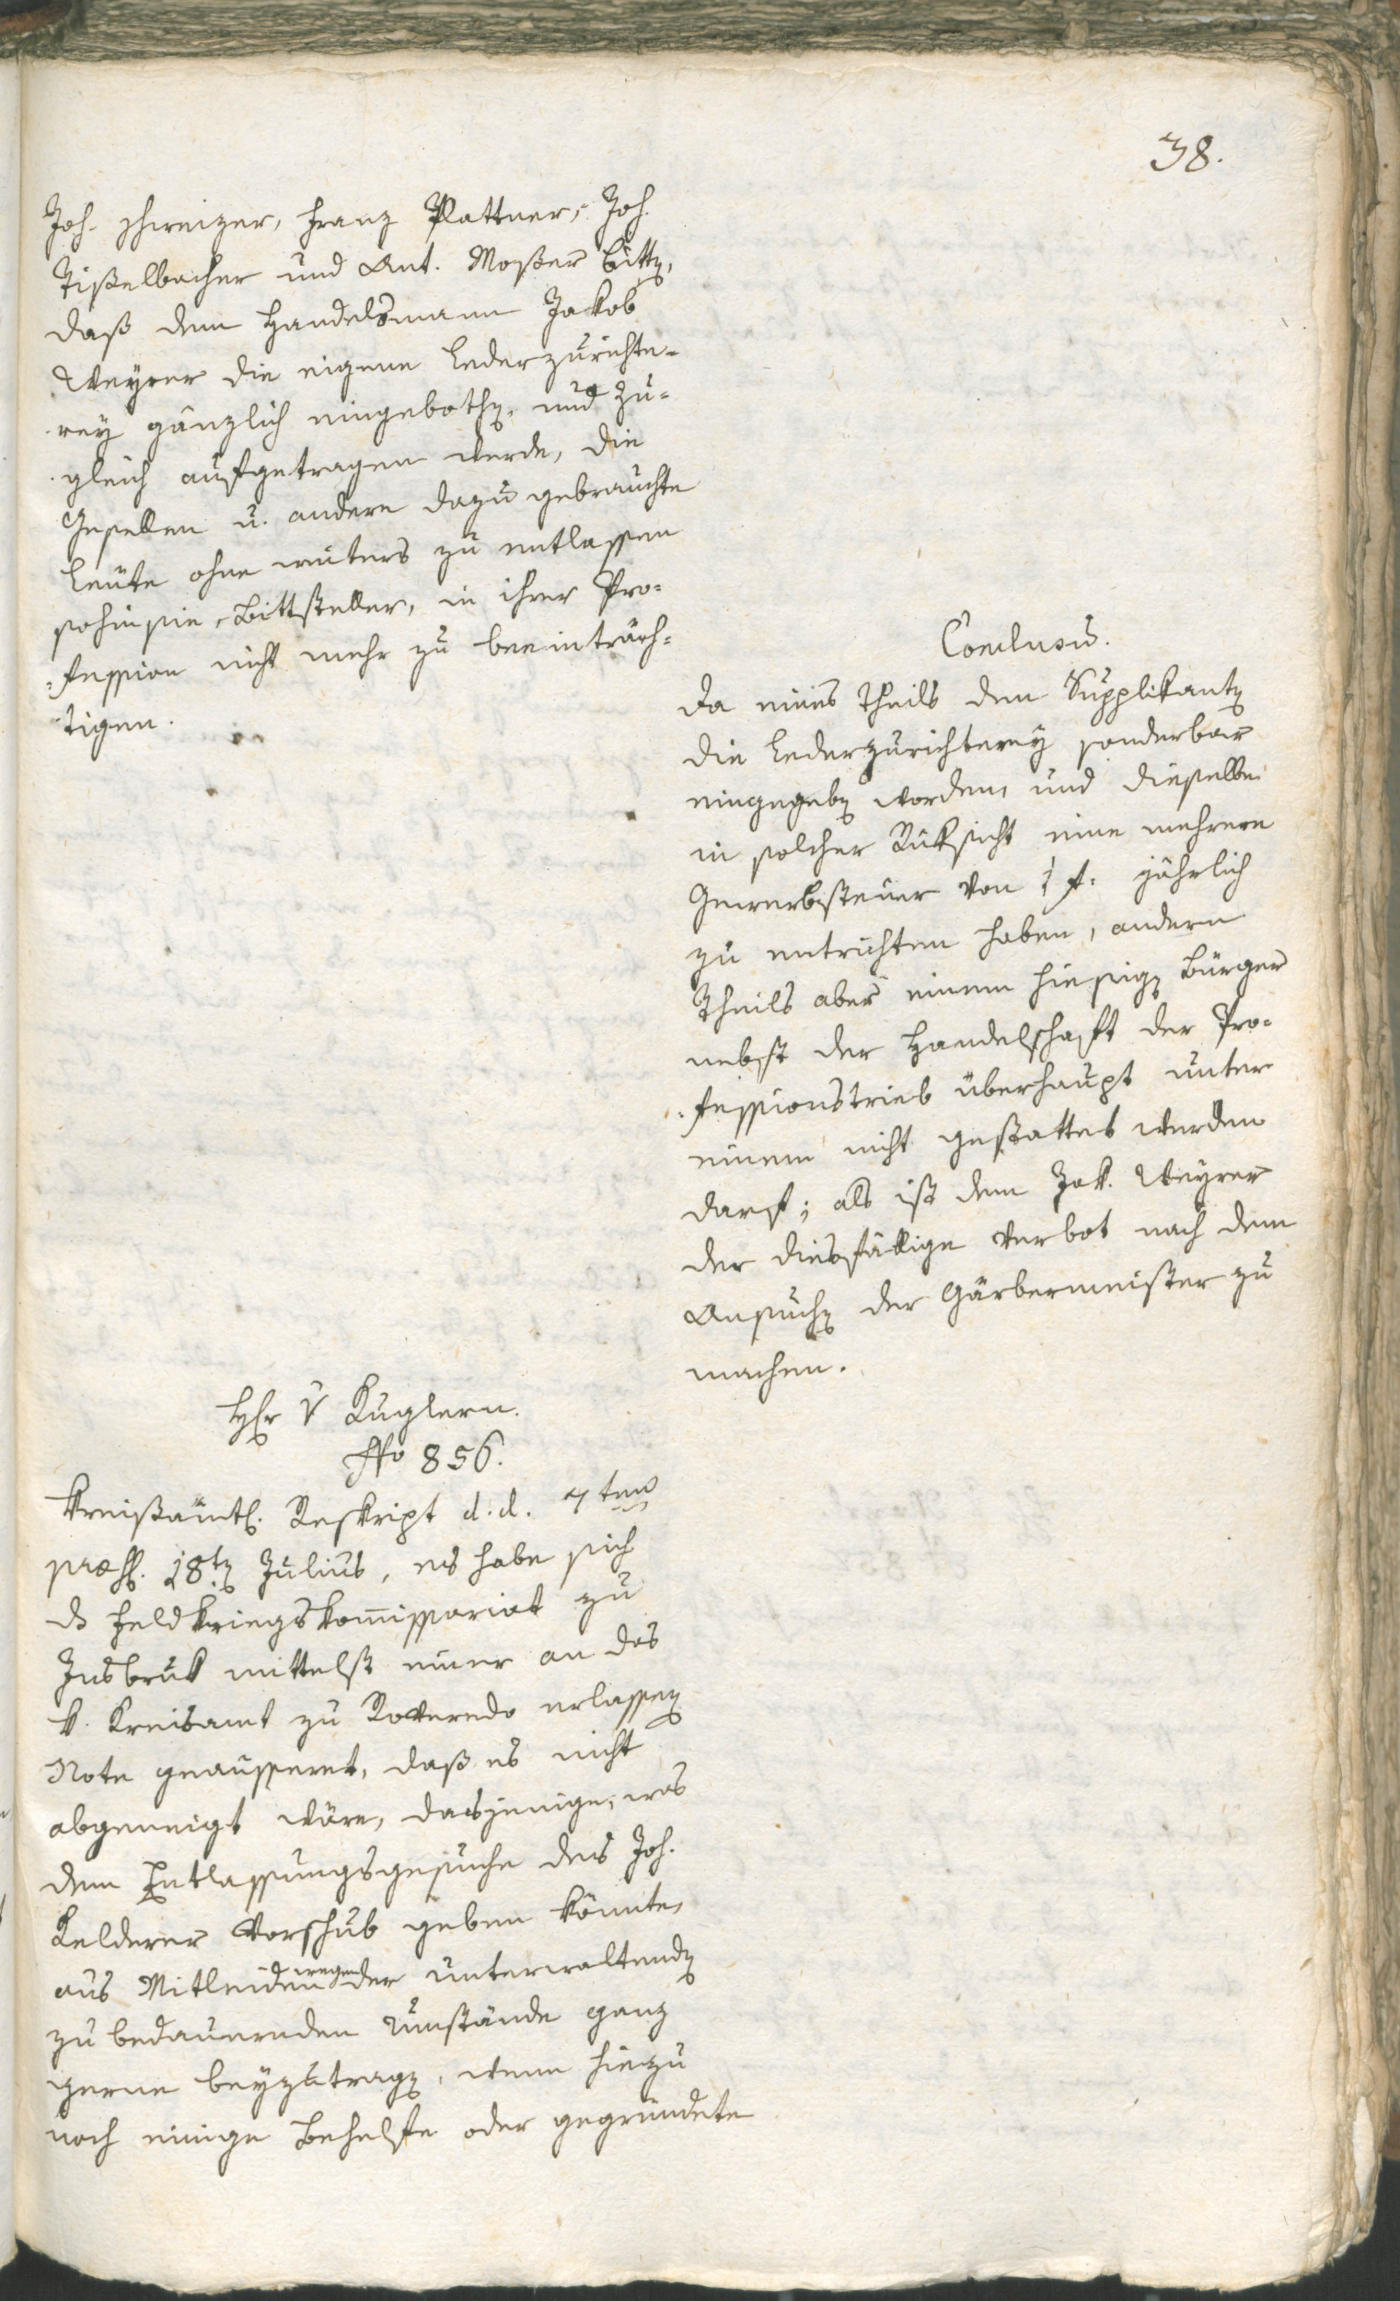 38.
Joh. Schweizer, Franz Plattner, Joh.
Tißelbacher und Ant. Moßer bittẽ,
daß dem Handelsmann Jakob
Weyrer die eigene Lederzurichte-
rey gänzlich eingebothẽ, und zu-
gleich aufgetragen werde, die
Gesellen u. andere dazu gebrauchte
Leute ohne weiters zu entlassen
sohin sie, Bittsteller, in ihrer Pro-
fession nicht mehr zu beeinträch-
tigen.
Conclusum.
Da eines Theils dem Supplikantẽ
die Lederzurichterey sonderbar
eingegebẽ worden, und dieselbe
in solcher Rüksicht eine mehrere
Gewerbsteuer von 1 f. jährlich
zu entrichten haben, andern
Theils aber einem hiesigẽ Bürger
nebst der Handelschaft der Pro-
fessionstrieb überhaupt unter
einem nicht gestattet werden
darf; als ist dem Jak. Weyrer
der diesfällige Verbot nach dem
Ansuchẽ der Gärbermeister zu
machen.
Hr v Kuglern.
No 856.
Kreißämtl. Reskript d. d. 7ten
præs. 18tẽ Julius, es habe sich
ds Feldkriegskom̃issariat zu
Insbruk mittelst einer an das
k. Kreisamt zu Roveredo erlassenẽ
Note geäusseret, daß es nicht
abgeneigt wäre, dasjenige, was
dem Entlassungsgesuche des Joh.
Kelderer Vorschub geben könnte,
aus Mitleiden wegen der unterwaltendẽ
zu bedauernden Umstände ganz
gerne beyzutragẽ, wenn hiezu
noch einige Behelfe oder gegründete